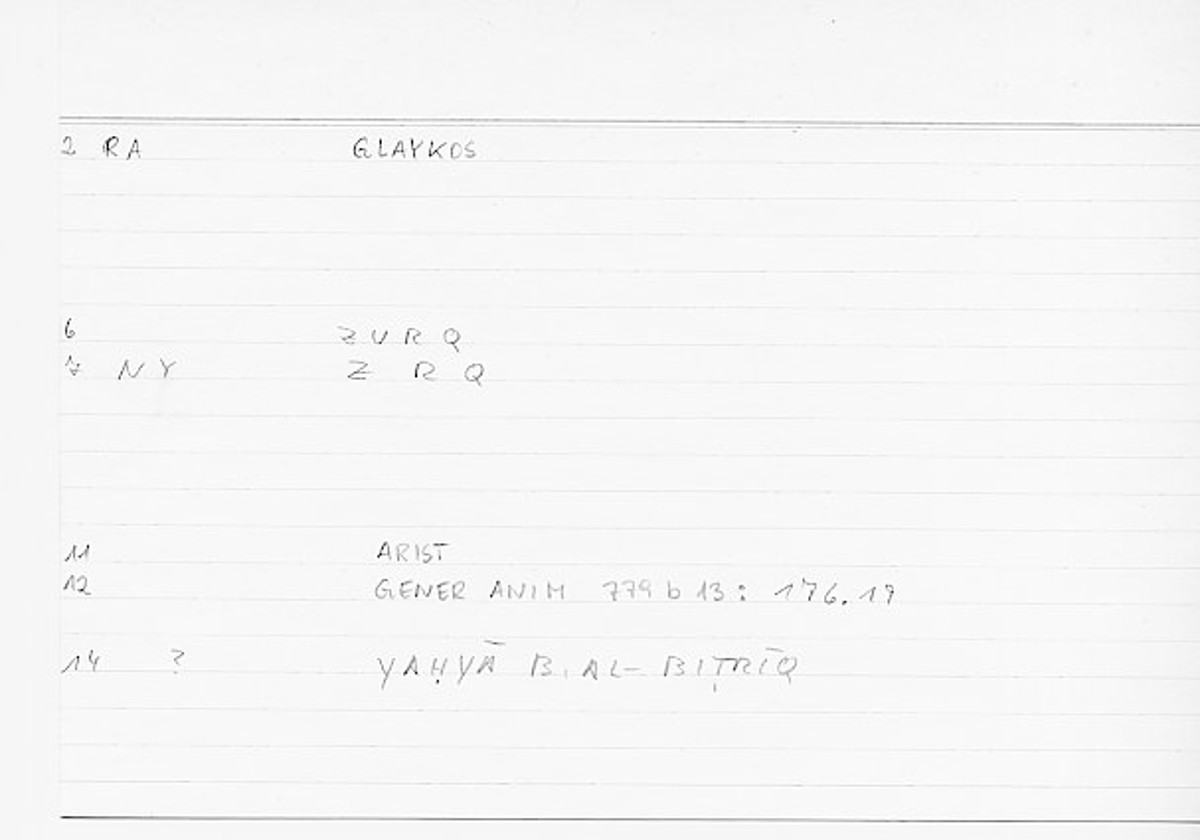 2 RA GLAYKOS
6 ZURQ
7 NY Z RQ
11 ARIST
12 GENER ANIM 779 b 13: 176.19
14 ? YAḤYĀ B. AL-BIṬRĪQ